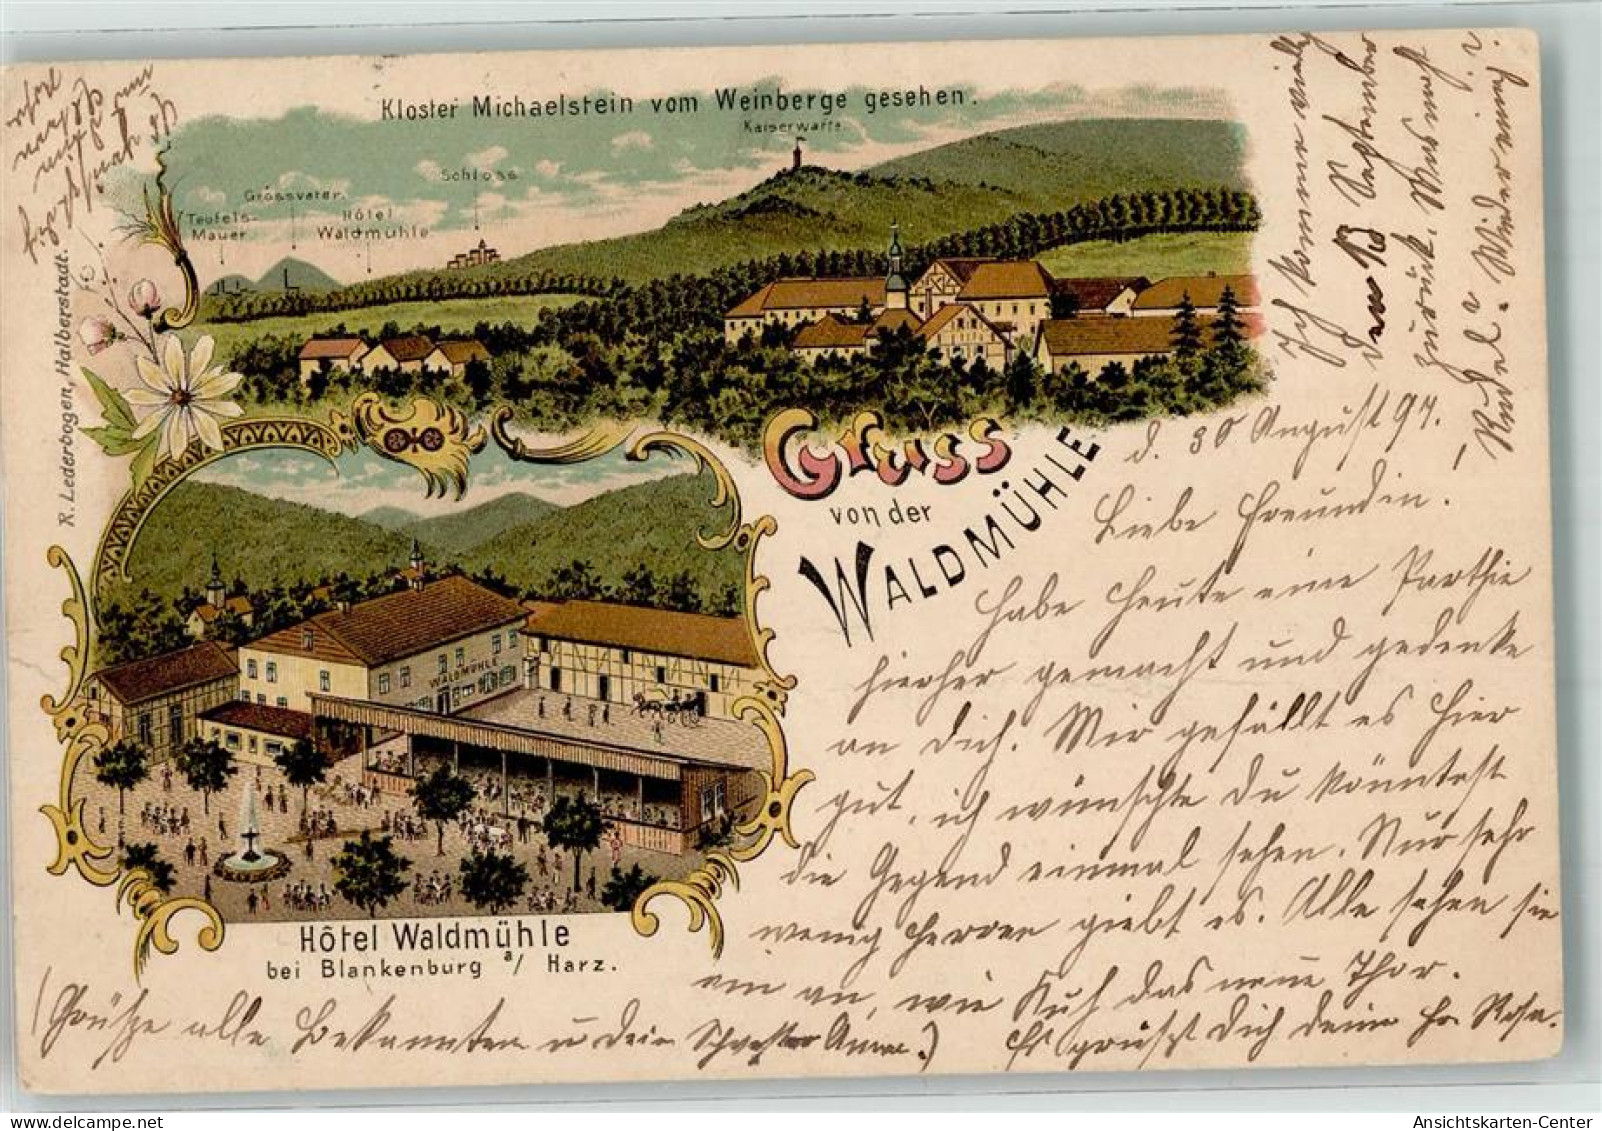 Kloster Michaelstein vom Weinberge gesehen.
Kaiserwarte.
Schloss
Grossvater.
Teufels-
Mauer
Hôtel
Waldmühle
R. Lederbogen, Halberstadt.
Gruss
von der
WALDMÜHLE
WALDMÜHLE
Hôtel Waldmühle
bei Blankenburg a/ Harz.
d. 30 August 97.
Liebe Freundin!
Habe heute eine Parthie
hierher gemacht und gedenke
an Dich. Mir gefällt es hier
gut, ich wünschte Du könntest
die Gegend einmal sehen. Nur sehr
wenig Herren giebt es. Alle sehen sie
ein an, wie Kuh das neue Thor.
Es grüßt Dich deine Rosa.
(Grüße alle Bekannten u Dein Schwester Anna.)
Ich komme
den 13 September
zurück.
Wieder